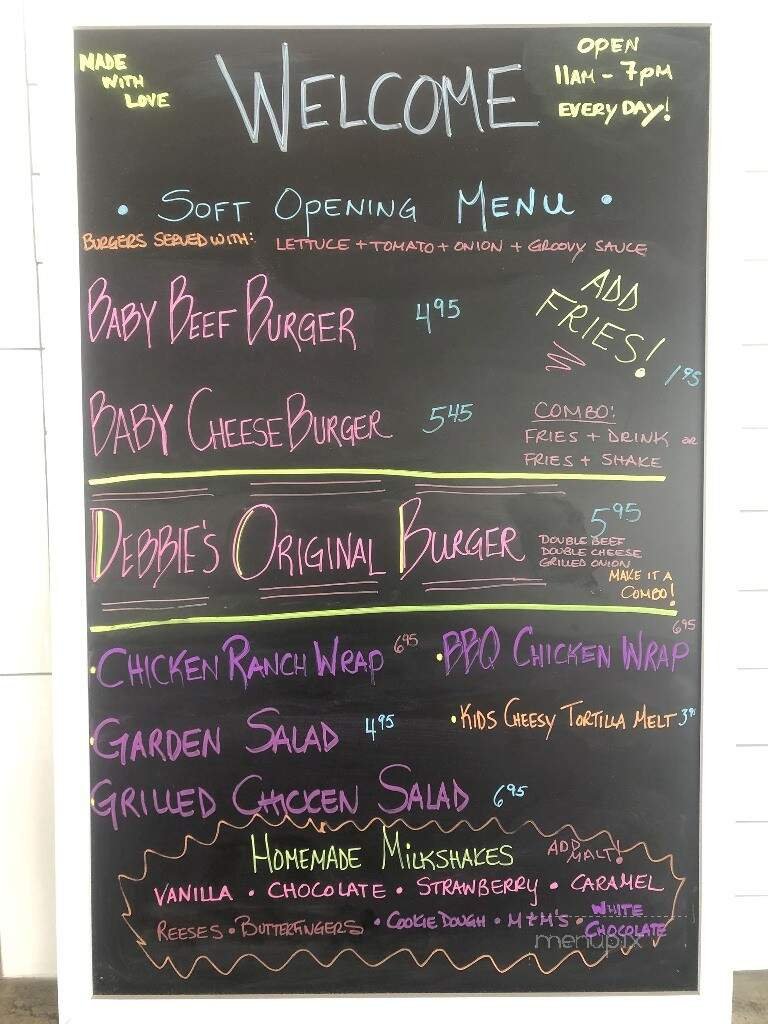 MADE WITH LOVE
WELCOME
OPEN
11AM - 7PM
EVERY DAY!
• SOFT OPENING MENU •
BURGERS SERVED WITH: LETTUCE + TOMATO + ONION + GROOVY SAUCE
BABY BEEF BURGER 4.95
ADD FRIES! 1.95
BABY CHEESEBURGER 5.45
COMBO:
FRIES + DRINK or
FRIES + SHAKE
DEBBIE'S ORIGINAL BURGER 5.95
DOUBLE BEEF
DOUBLE CHEESE
GRILLED ONION
MAKE IT A
COMBO!
• CHICKEN RANCH WRAP 6.95
• BBQ CHICKEN WRAP 6.95
• GARDEN SALAD 4.95
• KIDS CHEESY TORTILLA MELT 3.95
• GRILLED CHICKEN SALAD 6.95
HOMEMADE MILKSHAKES ADD MALT!
VANILLA • CHOCOLATE • STRAWBERRY • CARAMEL
REESES • BUTTERFINGERS • COOKIE DOUGH • M+M'S • WHITE CHOCOLATE
menupix